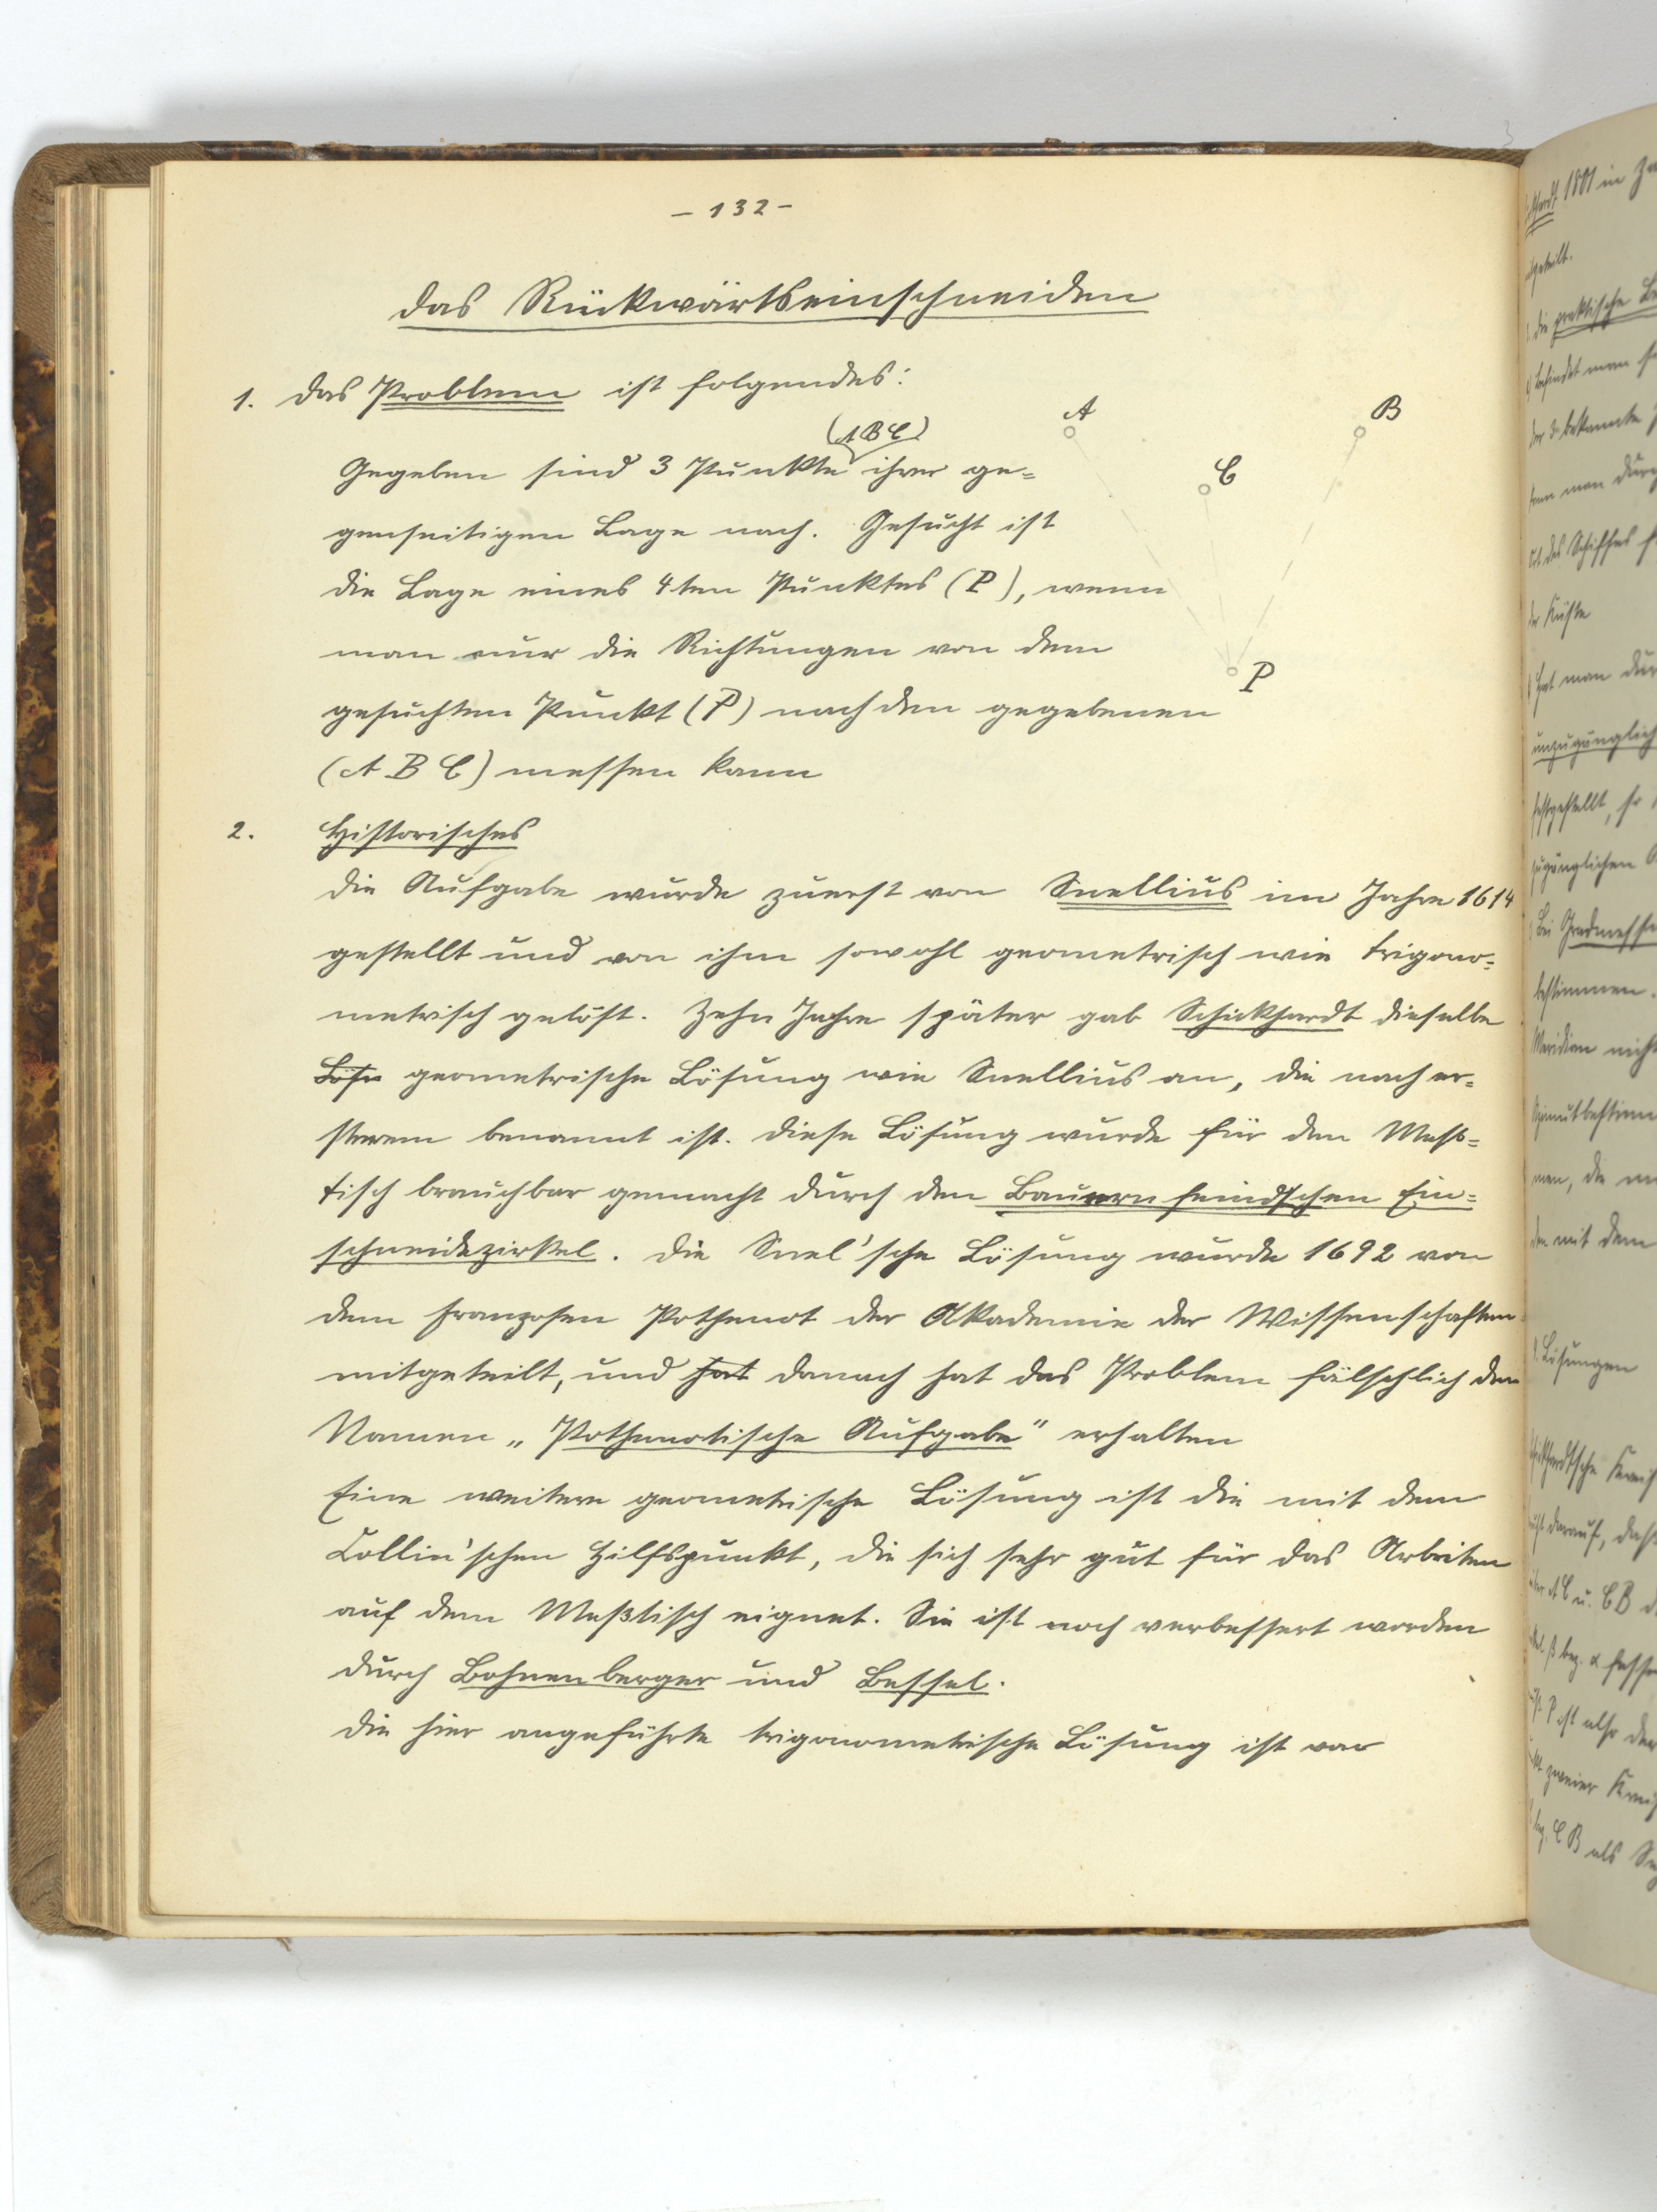 - 132 -
das Rückwärtseinschneiden
1. das Problem ist folgendes:
(A B C)
Gegeben sind 3 Punkte ihrer ge=
genseitigen Lage nach. Gesucht ist
die Lage eines 4ten Punktes (P), wenn
man nur die Richtungen von dem
gesuchten Punkt (P) nach den gegebenen
(A B C) messen kann
A
B
C
P
2. Historisches
die Aufgabe wurde zuerst von Snellius im Jahre 1614
gestellt und von ihm sowohl geometrisch wie trigono=
metrisch gelöst. Zehn Jahre später gab Schickhardt dieselbe
Löse geometrische Lösung wie Snellius an, die nach er=
sterem benannt ist. diese Lösung wurde für den Mess=
tisch brauchbar gemacht durch den Bauernfeindschen Ein=
schneidezirkel. die Snel'sche Lösung wurde 1692 von
dem Franzosen Pothenot der Akademie der Wissenschaften
mitgeteilt, und hat danach hat das Problem fälschlich den
Namen „Pothenotische Aufgabe" erhalten
Eine weitere geometrische Lösung ist die mit dem
Collin'schen Hilfspunkt, die sich sehr gut für das Arbeiten
auf dem Meßtisch eignet. Sie ist noch verbessert worden
durch Bohnenberger und Bessel.
die hier angeführte trigonometrische Lösung ist von
1801 in
die praktische
befindet man
der 3 bekannte
man
Ort des Schiffes
der Küste
man
unzugänglich
festgestellt, so
zugänglichen
Bei
bestimmen.
Meridian nicht
men, die
den mit dem
Lösungen
darauf, daß
A C u. C B
β bez. α
P ist also der
zweier
C B als